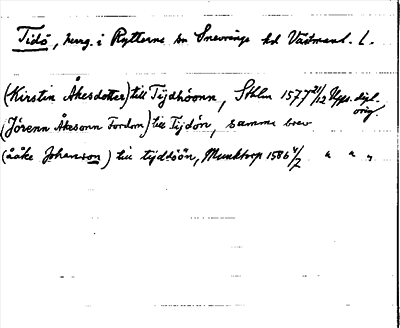 Tidö, herrg. i Rytterne sn Snevringe hd Västmanl. L.
(Kirstin Åkesdotter) till Tijdhöönn, Sthlm 1577 21/12 Upps. dipl. orig.
(Jörenn Åkesonn Fordom) till Tijdön, samma brev
(ååke Johanson) till tijdtöön, Munktorp 1586 4/7 " " "